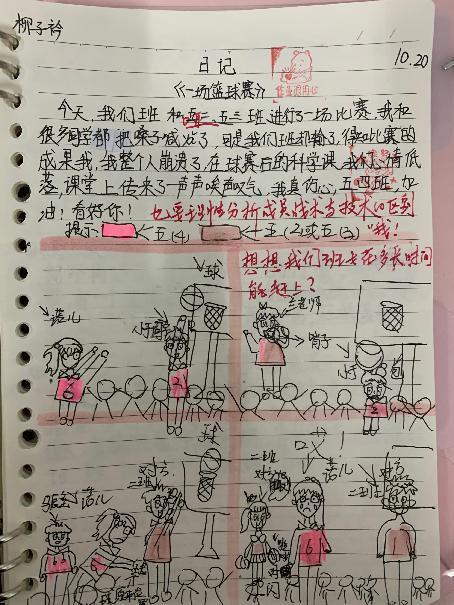 柳子衿
10.20
日记
《一场篮球赛》
作业很用心
今天,我们班和五二、五三班进行了一场比赛,我和
很多同学都把嗓子喊哑了,可是我们班都输了,得知比赛的
成果我,我整个人崩溃了,在球赛后的科学课,我们情低
落,课堂上传来了一声声唉声叹气,我真伤心,五四班,加
油!看好你!
也要理性分析成员战术与技术
提示: ← 五(4) ← 五(2)或五(3)
想想我们班去花多长时间
能赶上?
球
诺儿
老师
肖子
包
球
对方
二班
诺儿
二班
对方
诺儿
对方
二班
闪